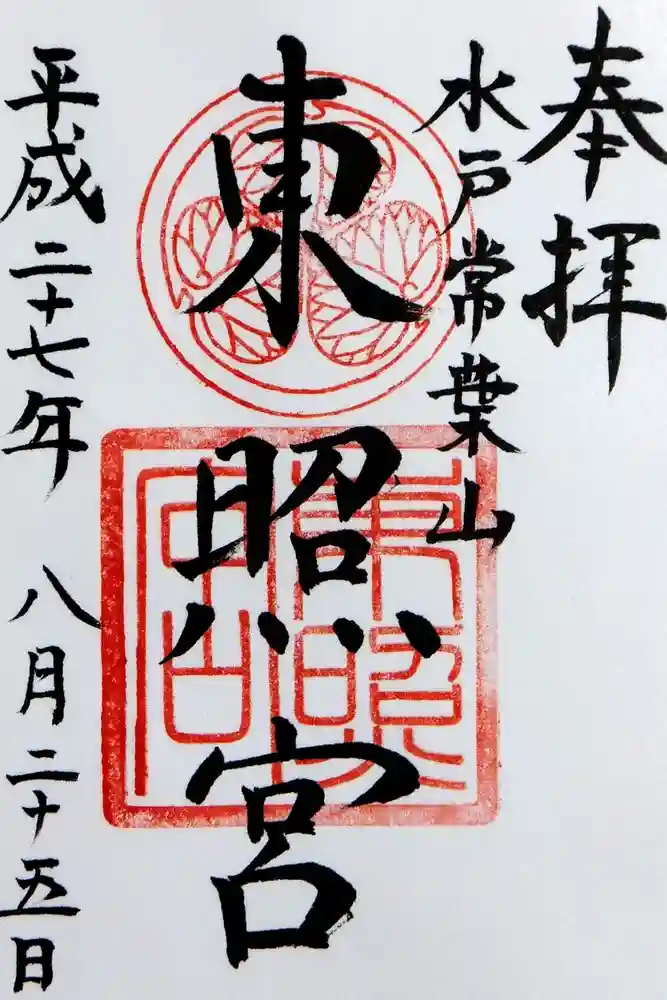 奉拝
水戸常葉山
東照宮
東照宮
平成二十七年 八月二十五日